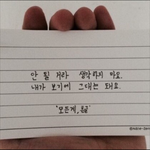 안 될 거라 생각하지 마요.
내가 보기에 그대는 돼요.
"모든게, 응응"